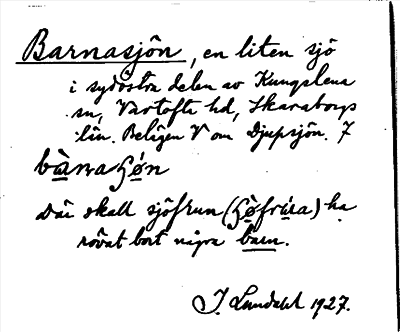 Barnasjön, en liten sjö
i sydöstra delen av Kungslena
sn, Vartofta hd, Skaraborgs
län. Belägen V om Djupsjön. 7
Där skall sjöfrun ( ) ha
rövat bort några barn.
J. Lundahl 1927.